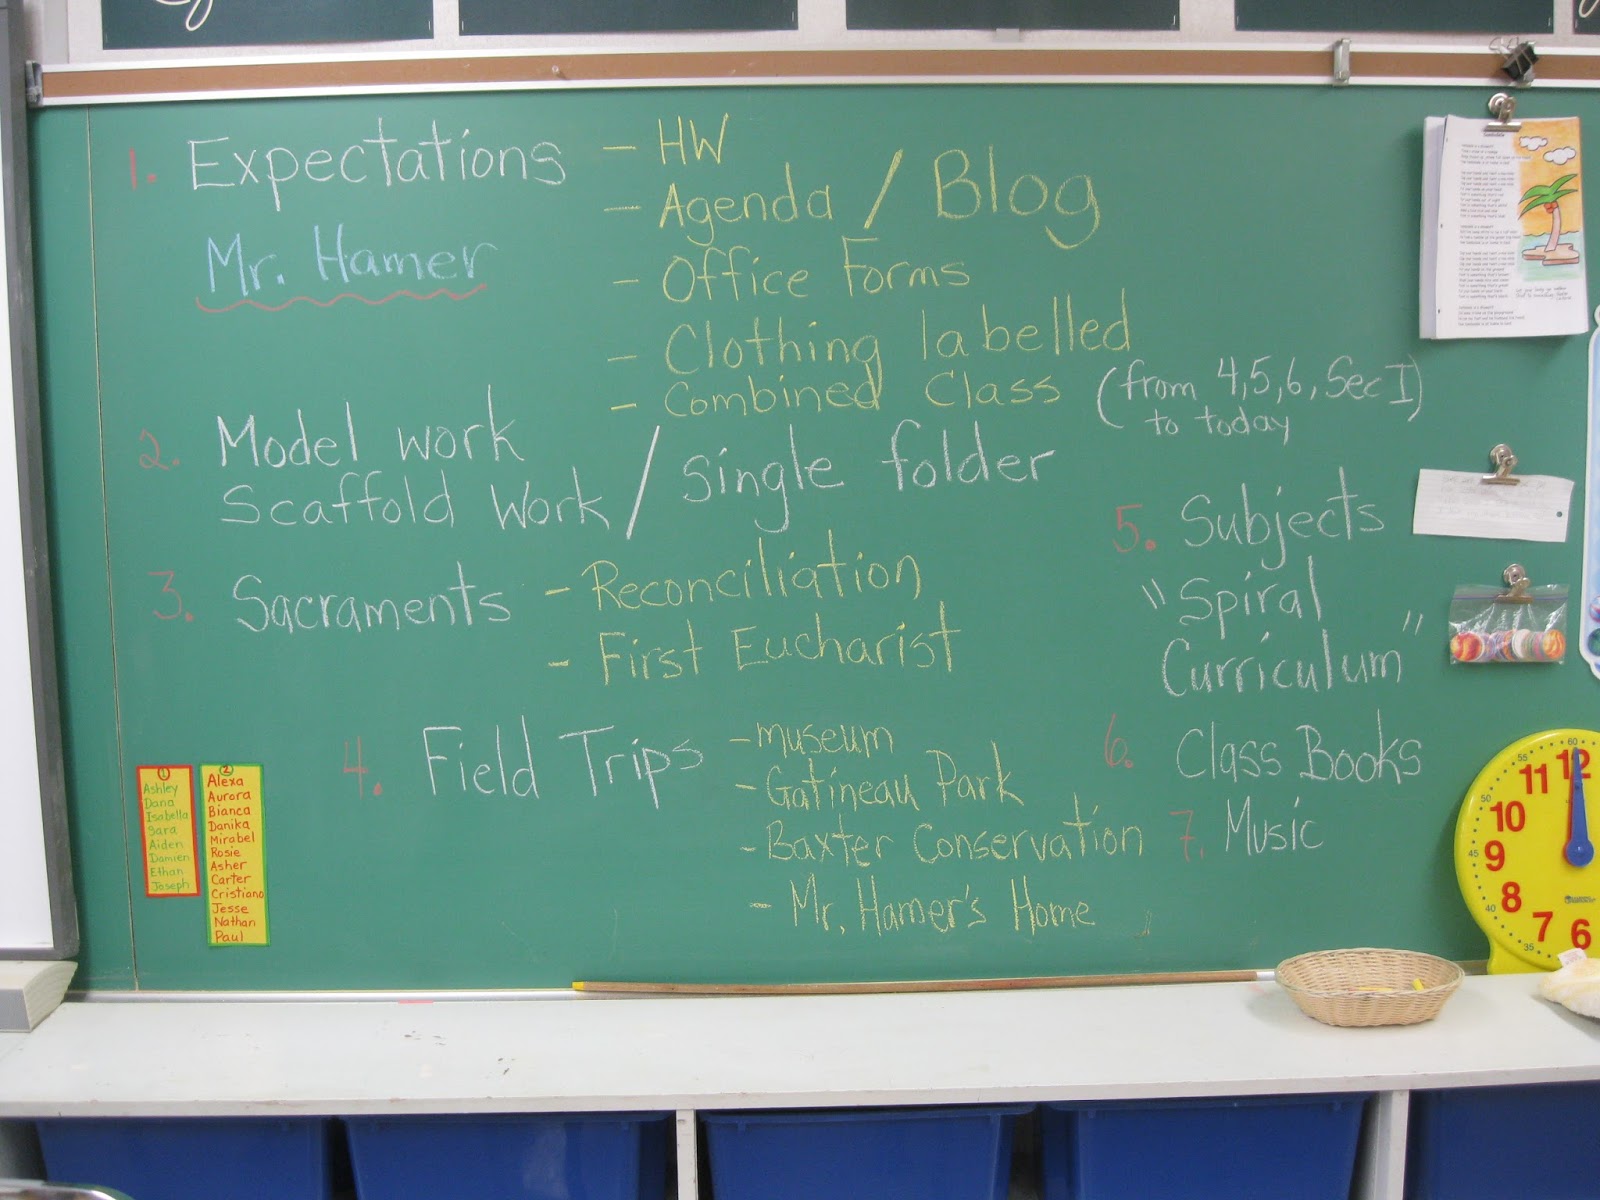 1. Expectations
Mr. Hamer
- HW
- Agenda / Blog
- Office Forms
- Clothing labelled
- Combined Class (from 4,5,6, Sec I)
to today
2. Model work
Scaffold Work / single folder
3. Sacraments - Reconciliation
- First Eucharist
4. Field Trips - museum
- Gatineau Park
- Baxter Conservation
- Mr. Hamer's Home
5. Subjects
"Spiral
Curriculum"
6. Class Books
7. Music
1
Ashley
Dana
Isabella
Sara
Aiden
Damien
Ethan
Joseph
2
Alexa
Aurora
Bianca
Danika
Mirabel
Rosie
Asher
Carter
Cristiano
Jesse
Nathan
Paul
60
55
12
11
50
10
45
9
8
40
7
6
35